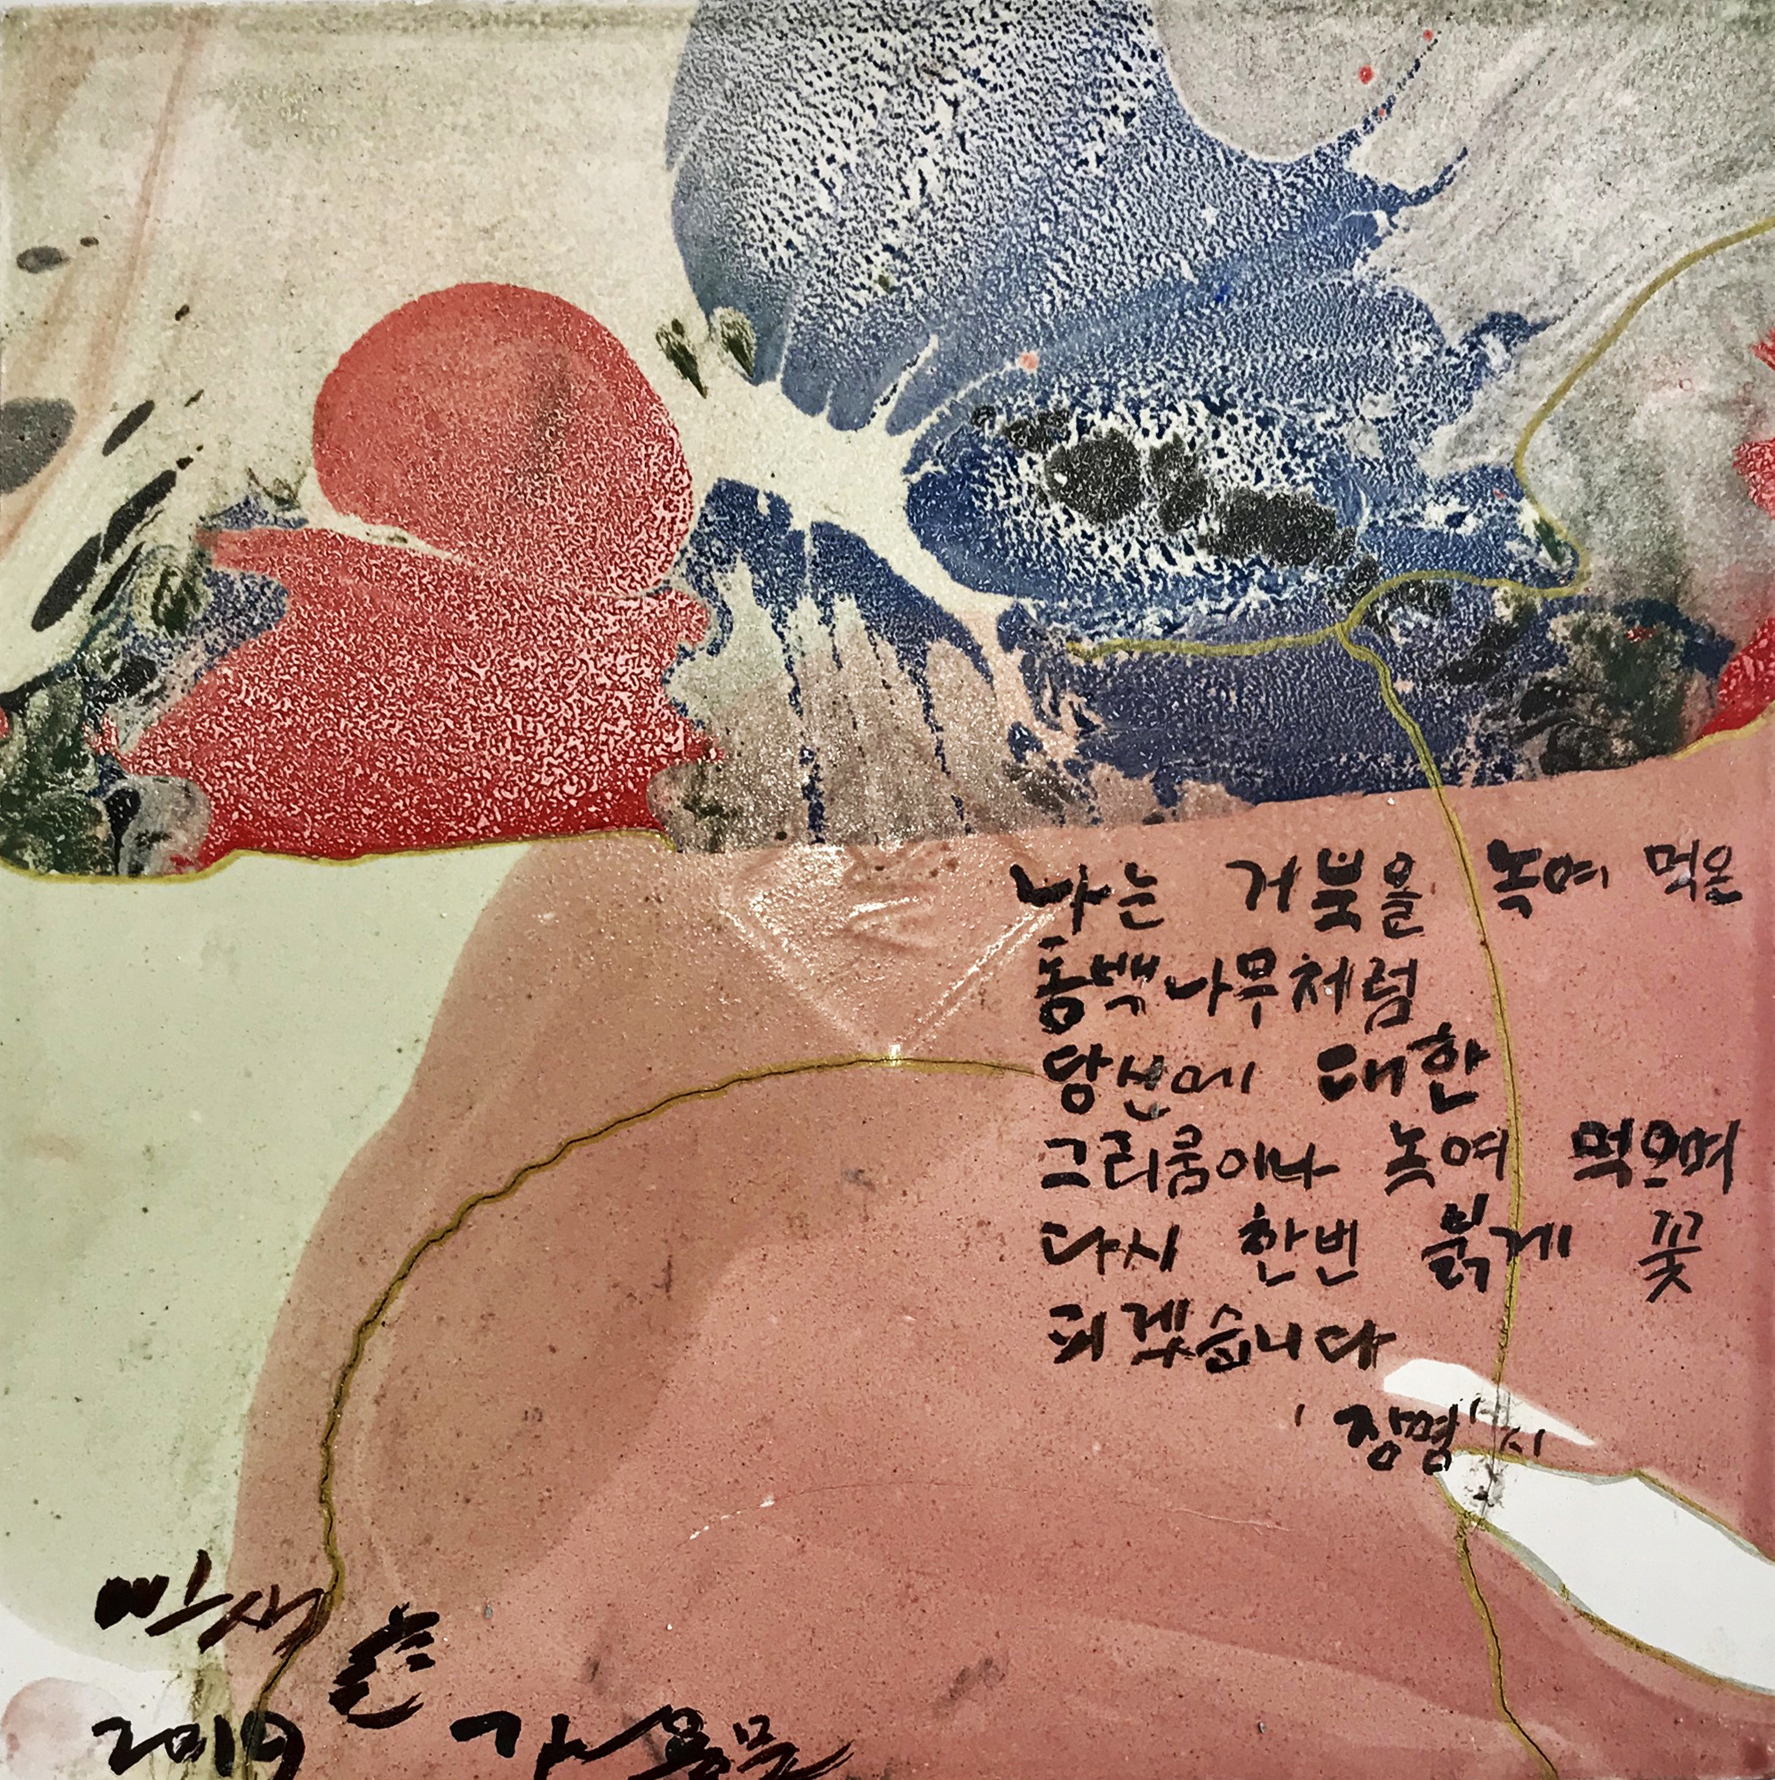 나는 거북을 녹여 먹은
동백나무처럼
당신에 대한
그리움이나 녹여 먹으며
다시 한번 붉게 꽃
피겠습니다
'장명' 시
2019